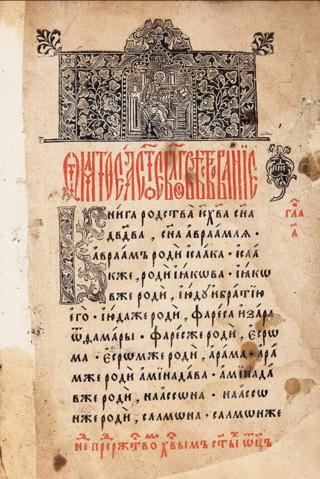 Ѿ маѳеа ст҃ое бл҃говѣствованїе
Книга родства іс҃ух҃ва сн҃а
дв҃два , сн҃а авраамлѧ ·
Авраамъ роди ісаака · ісаа
к же , роди іакѡва · іакѡ
в же роди , іюду и братїю
его · іюда же роди , фареса и зара
ѿ ѳамары · фарес же роди , есрѡ
ма · есрѡм же роди , арама · ара
м же роди аминадава · аминада
в же роди , наассѡна · наассѡ
н же роди , салмѡна · салмѡн же
гла
а